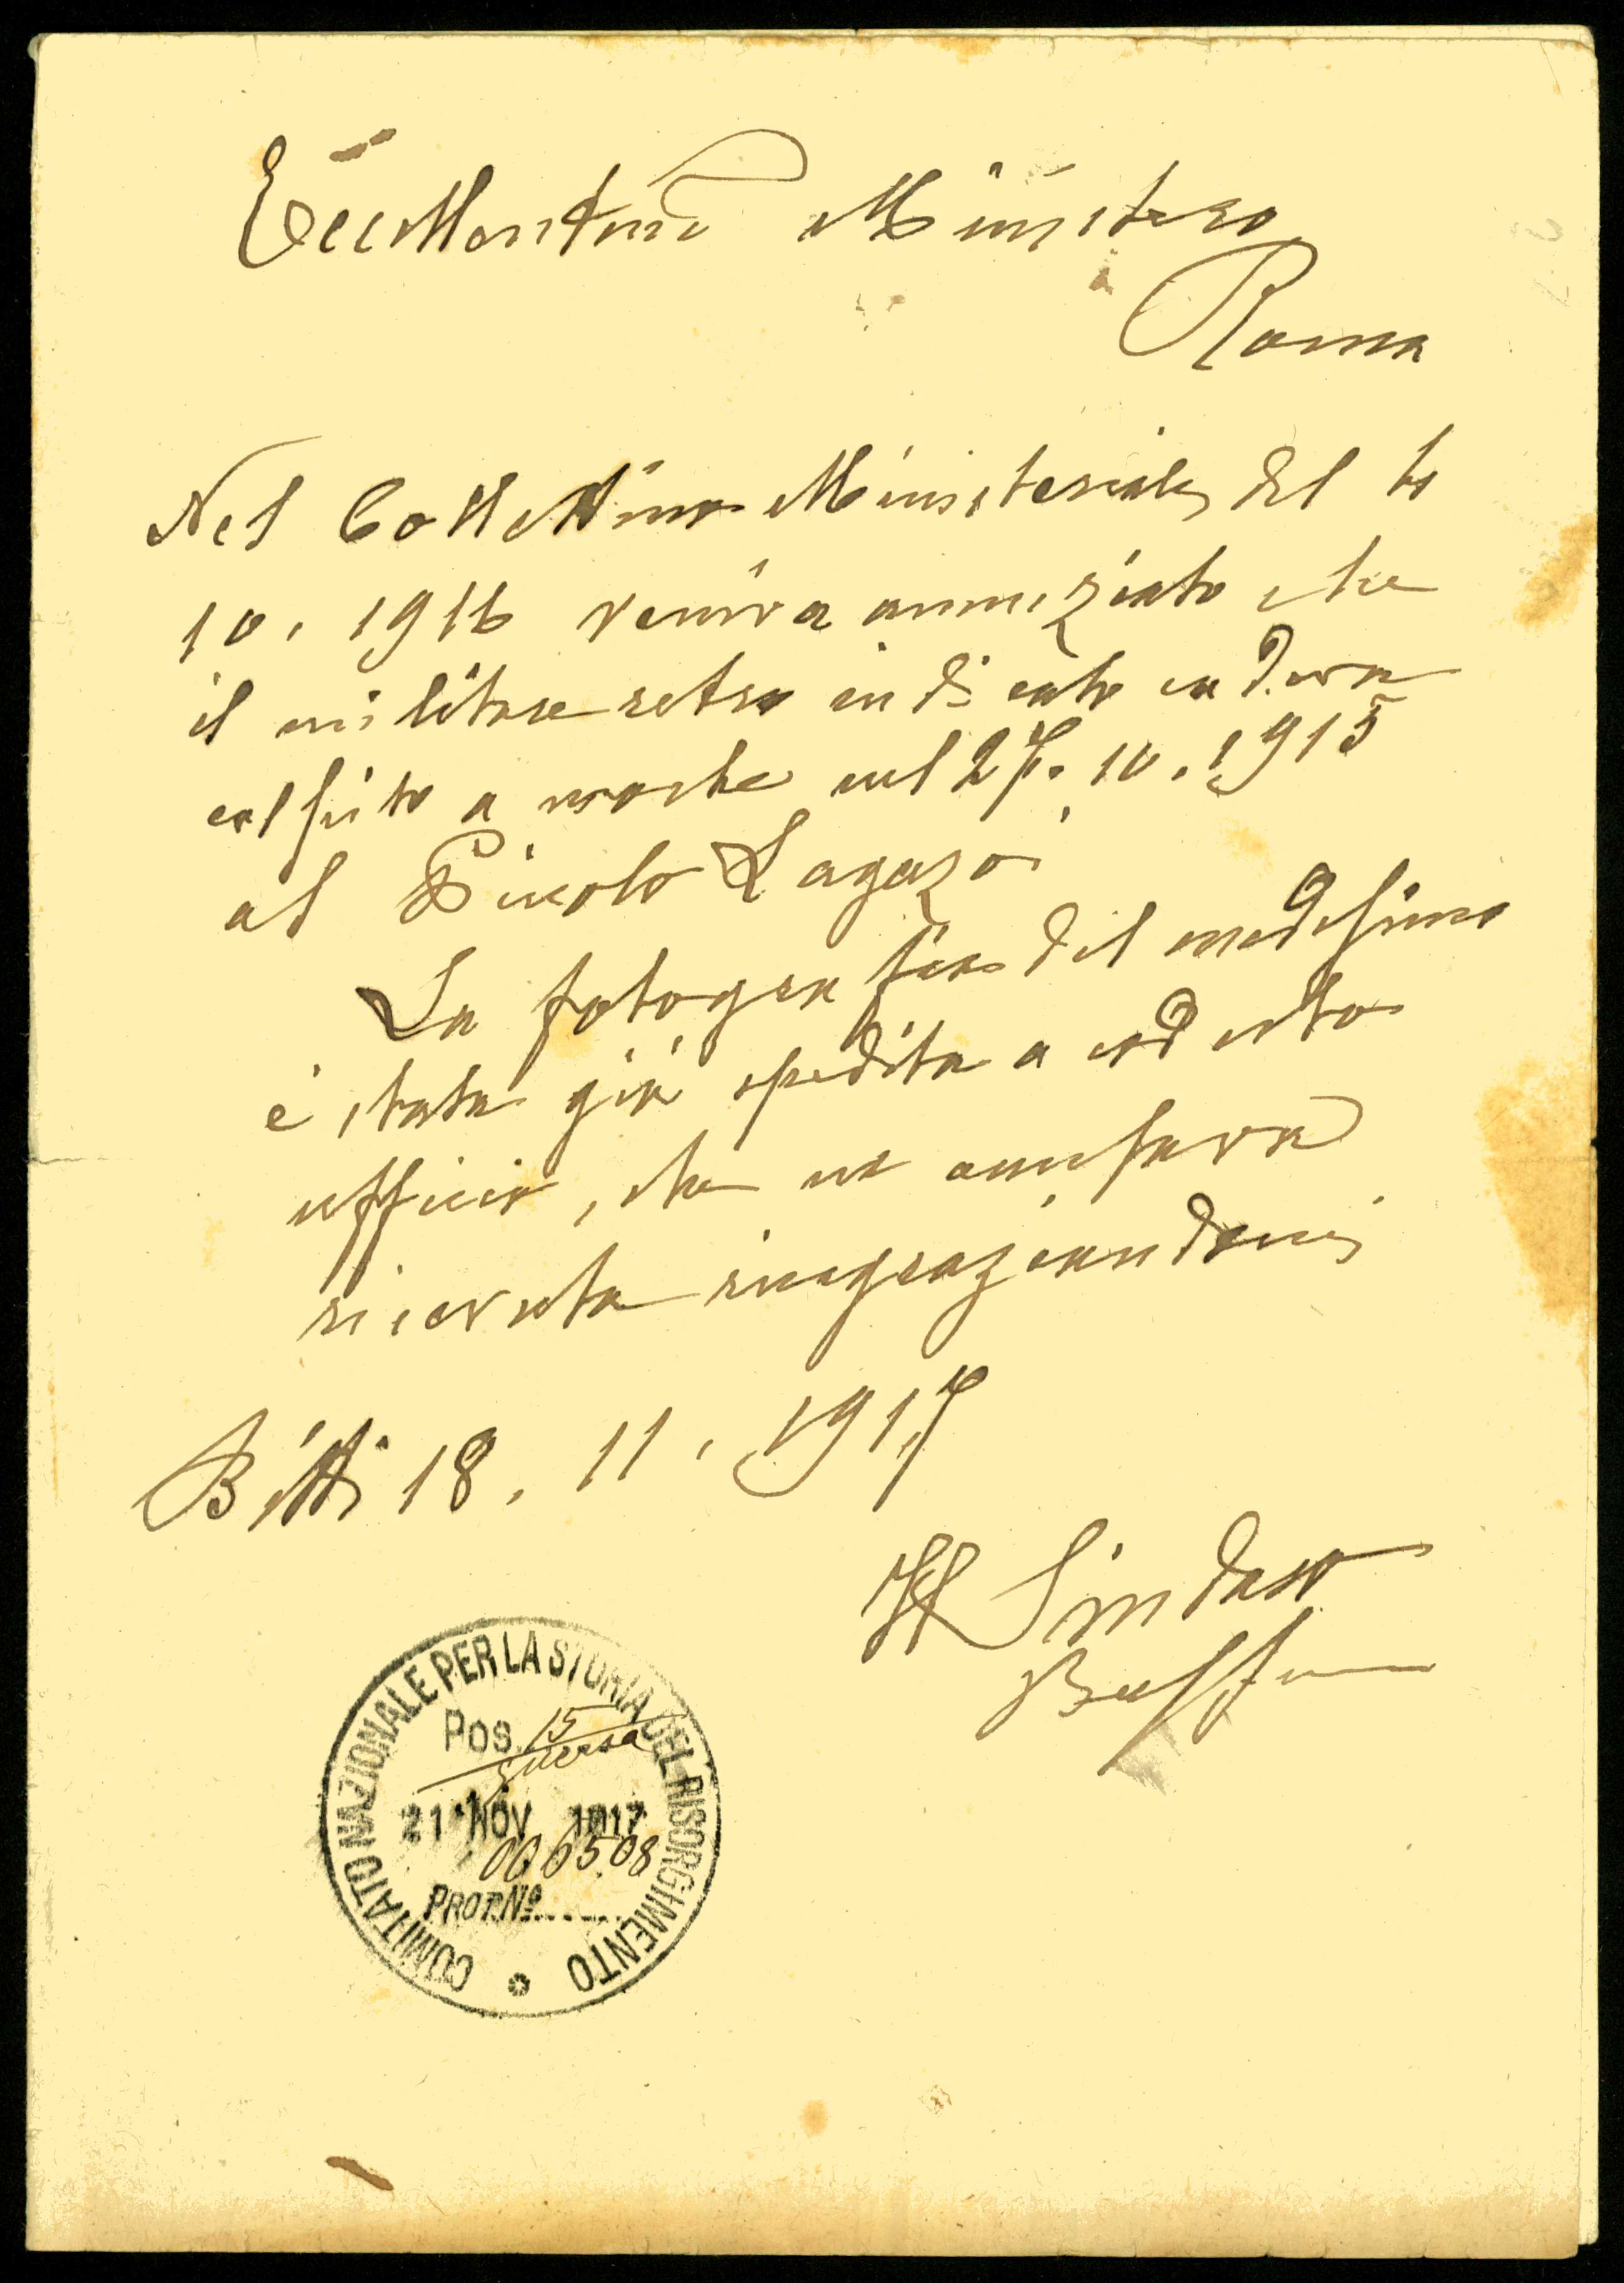 Eccellentmo Ministero
Roma
Nel Bollettino Ministeriale del
10. 1916 veniva annunziato che
il militare retro indicato cadeva
colpito a morte nel 27. 10. 1915
al Piccolo Lagazoi
La fotografia del medesimo
è stata già spedita a codesto
ufficio, che ne accusava
ricevuta ringraziandomi
Bitti 18. 11. 1917
Il Sindaco
COMITATO NAZIONALE PER LA STORIA DEL RISORGIMENTO
Pos. 15
guerra
21 NOV 1917
006508
PROT. Nº